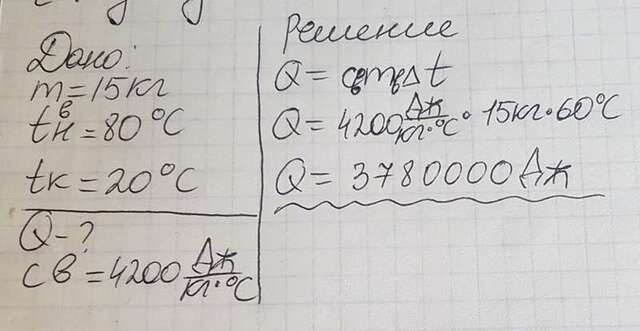 Дано:
m в = 15кг
tн = 80°C
tк = 20°C
Q - ?
cв = 4200 Дж/кг·°C
Решение
Q = cвmвΔt
Q = 4200 Дж/кг·°C · 15кг · 60°C
Q = 3780000 Дж